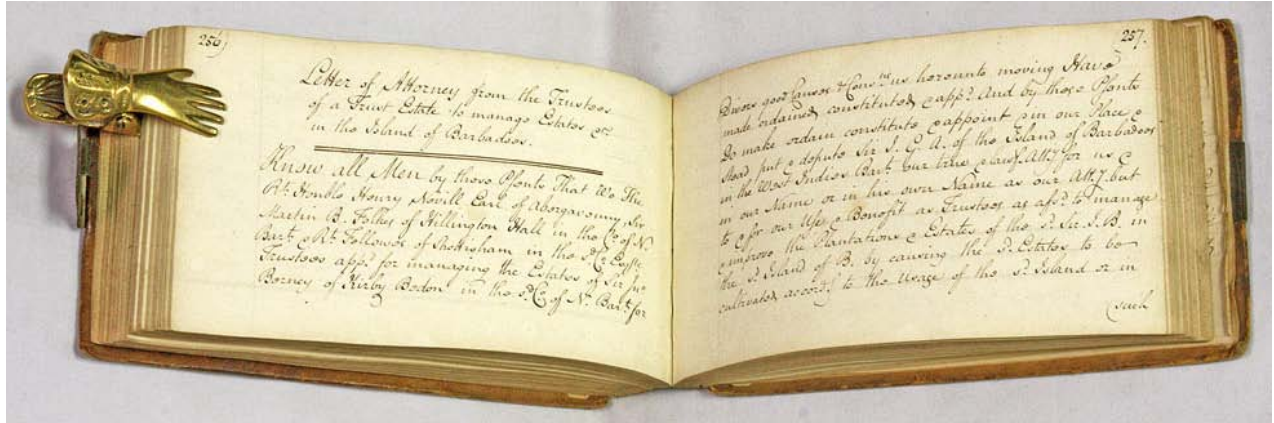 256)
Letter of Attorney from the Trustees
of a Trust Estate to manage Estates &c
in the Island of Barbadoes.
Know all Men by these Psents That We The
Rt. Honble Henry Nevill Earl of Abergavenny, Sir
Martin B. Folkes of Hillington Hall in the Co. of N.
Bart. & Rt. Fellowes of Shottisham in the sd. Co. Esqre.
Trustees appd. for managing the Estates of Sir Jno.
Berney of Kirby Bedon in the sd. Co. of N. Bart. for
257.
Divers good Causes & Consns. us hereunto moving Have
made ordained constituted & appd. And by these Psents
Do make ordain constitute & appoint & in our Place &
Stead put & depute Sir J. G. A. of the Island of Barbadoes
in the West Indies Bart. our true & lawf. Atty. for us &
in our Name or in his own Name as our Atty. but
to & for our Use & Benefit as Trustees as afsd. to manage
& improve the Plantations & Estates of the sd. Sir J. B. in
the sd. Island of B. by causing the sd. Estates to be
cultivated accordg. to the Usage of the sd. Island or in
(such